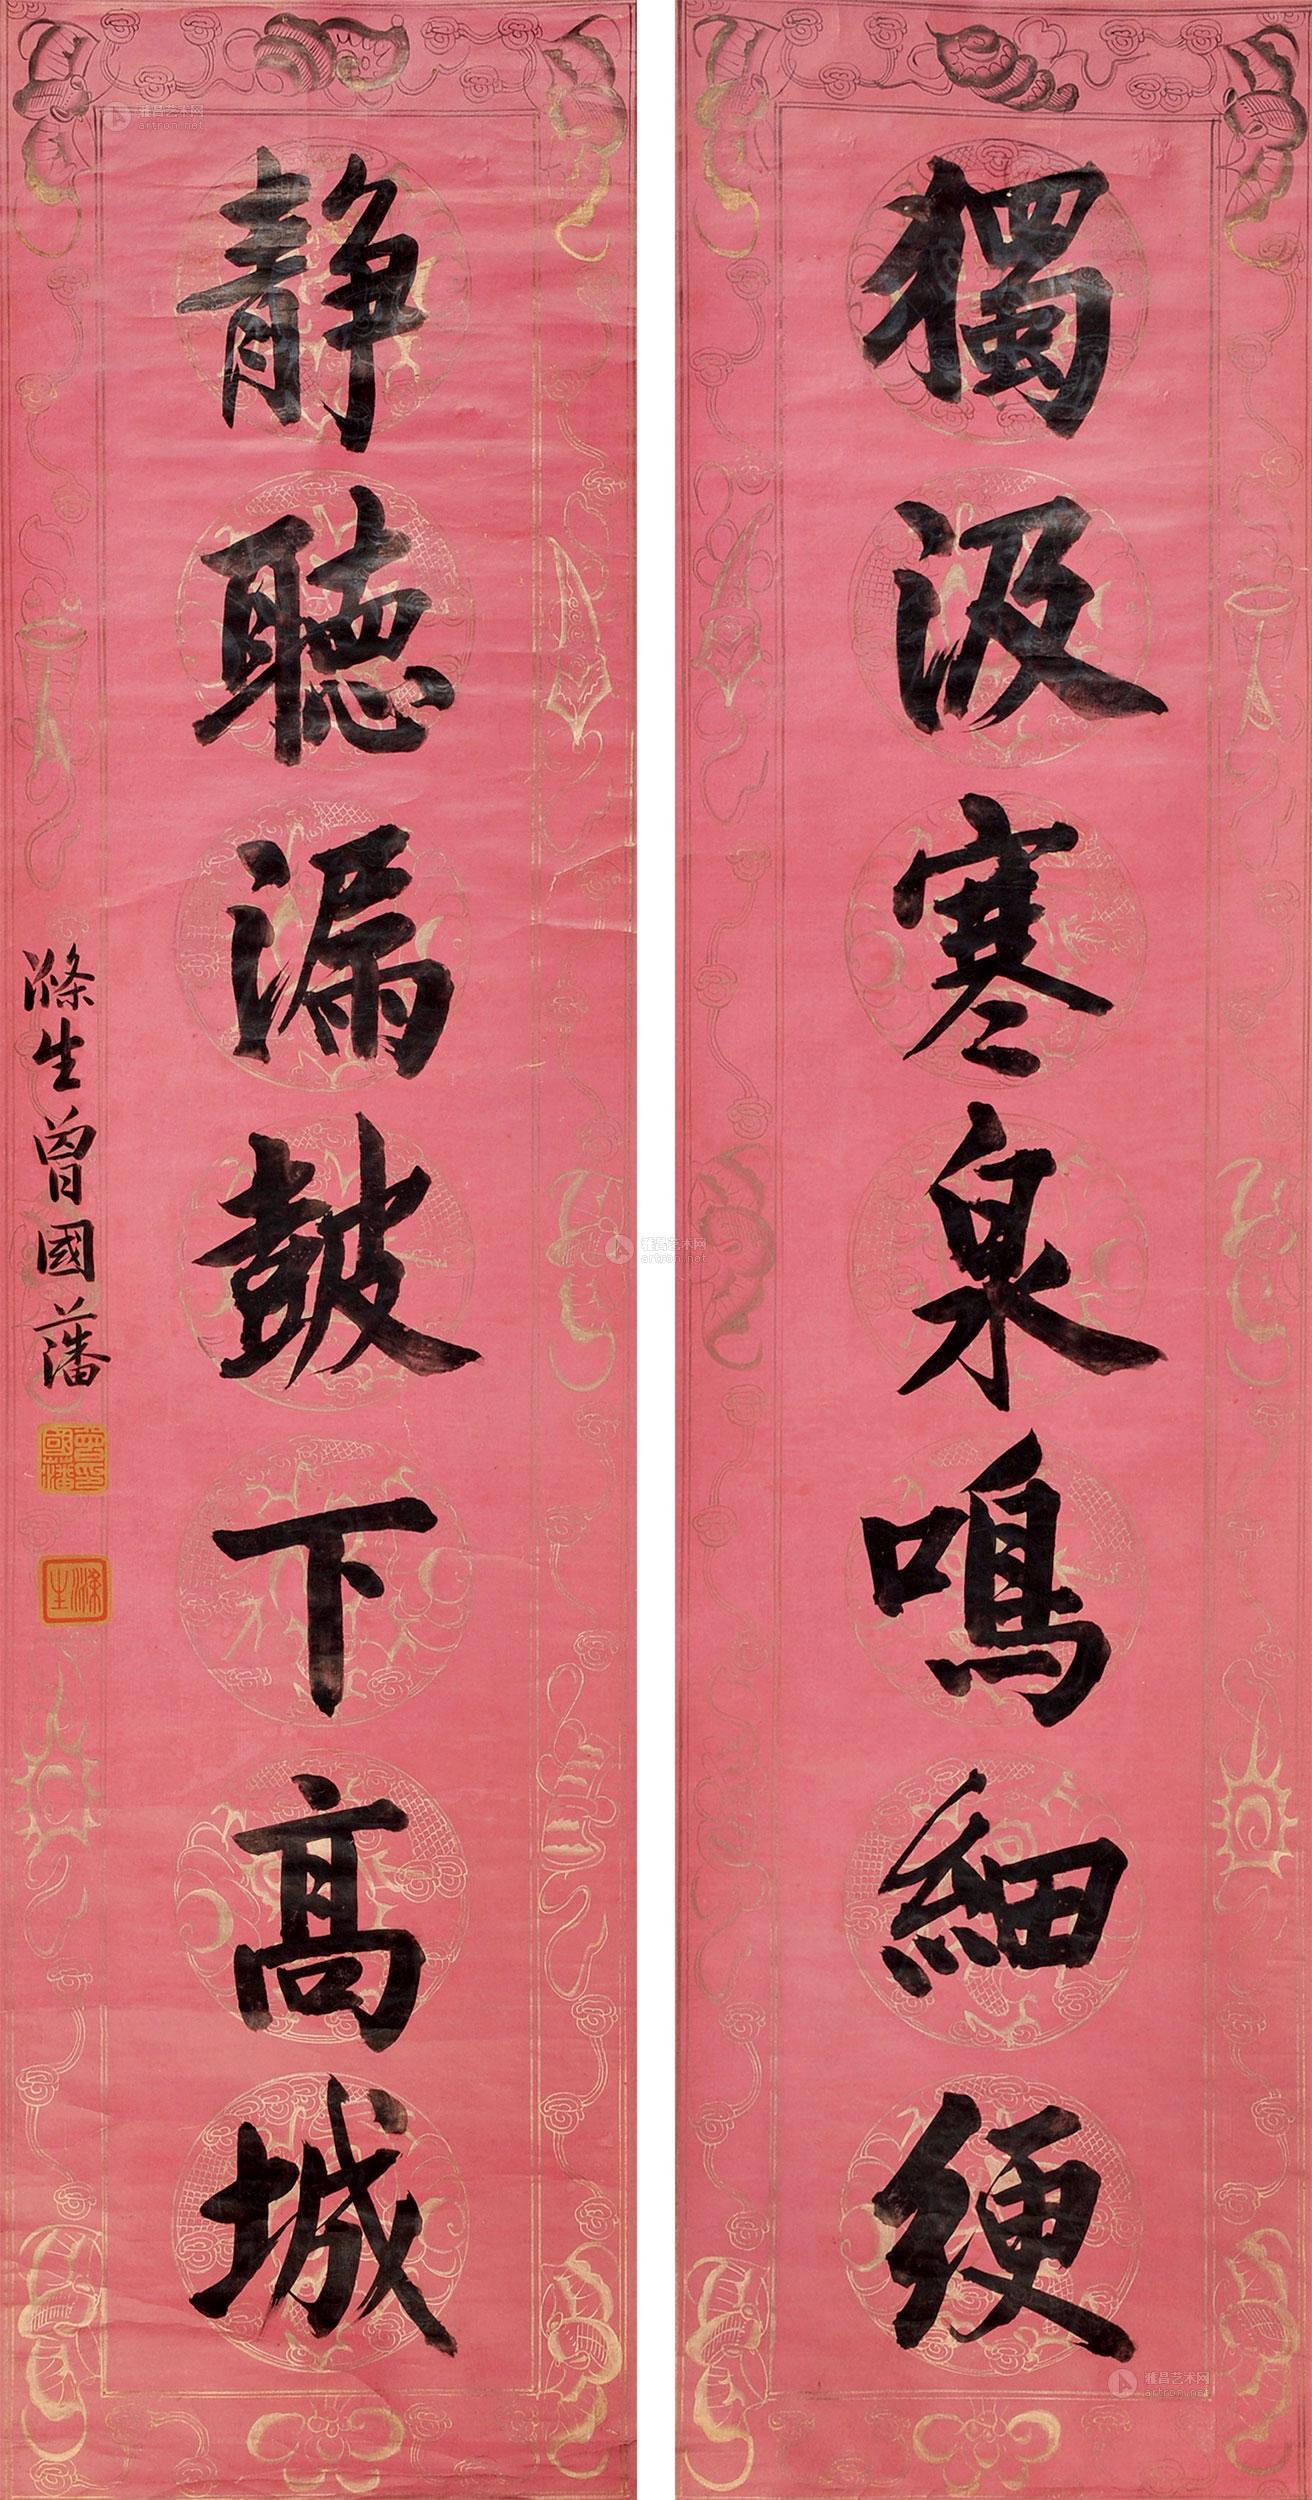 獨汲寒泉鳴細綆
静聽漏鼓下高城
滌生曾國藩
曾印國藩
滌生
雅昌艺术网
artron.net
雅昌艺术网
artron.net
雅昌艺术网
artron.net